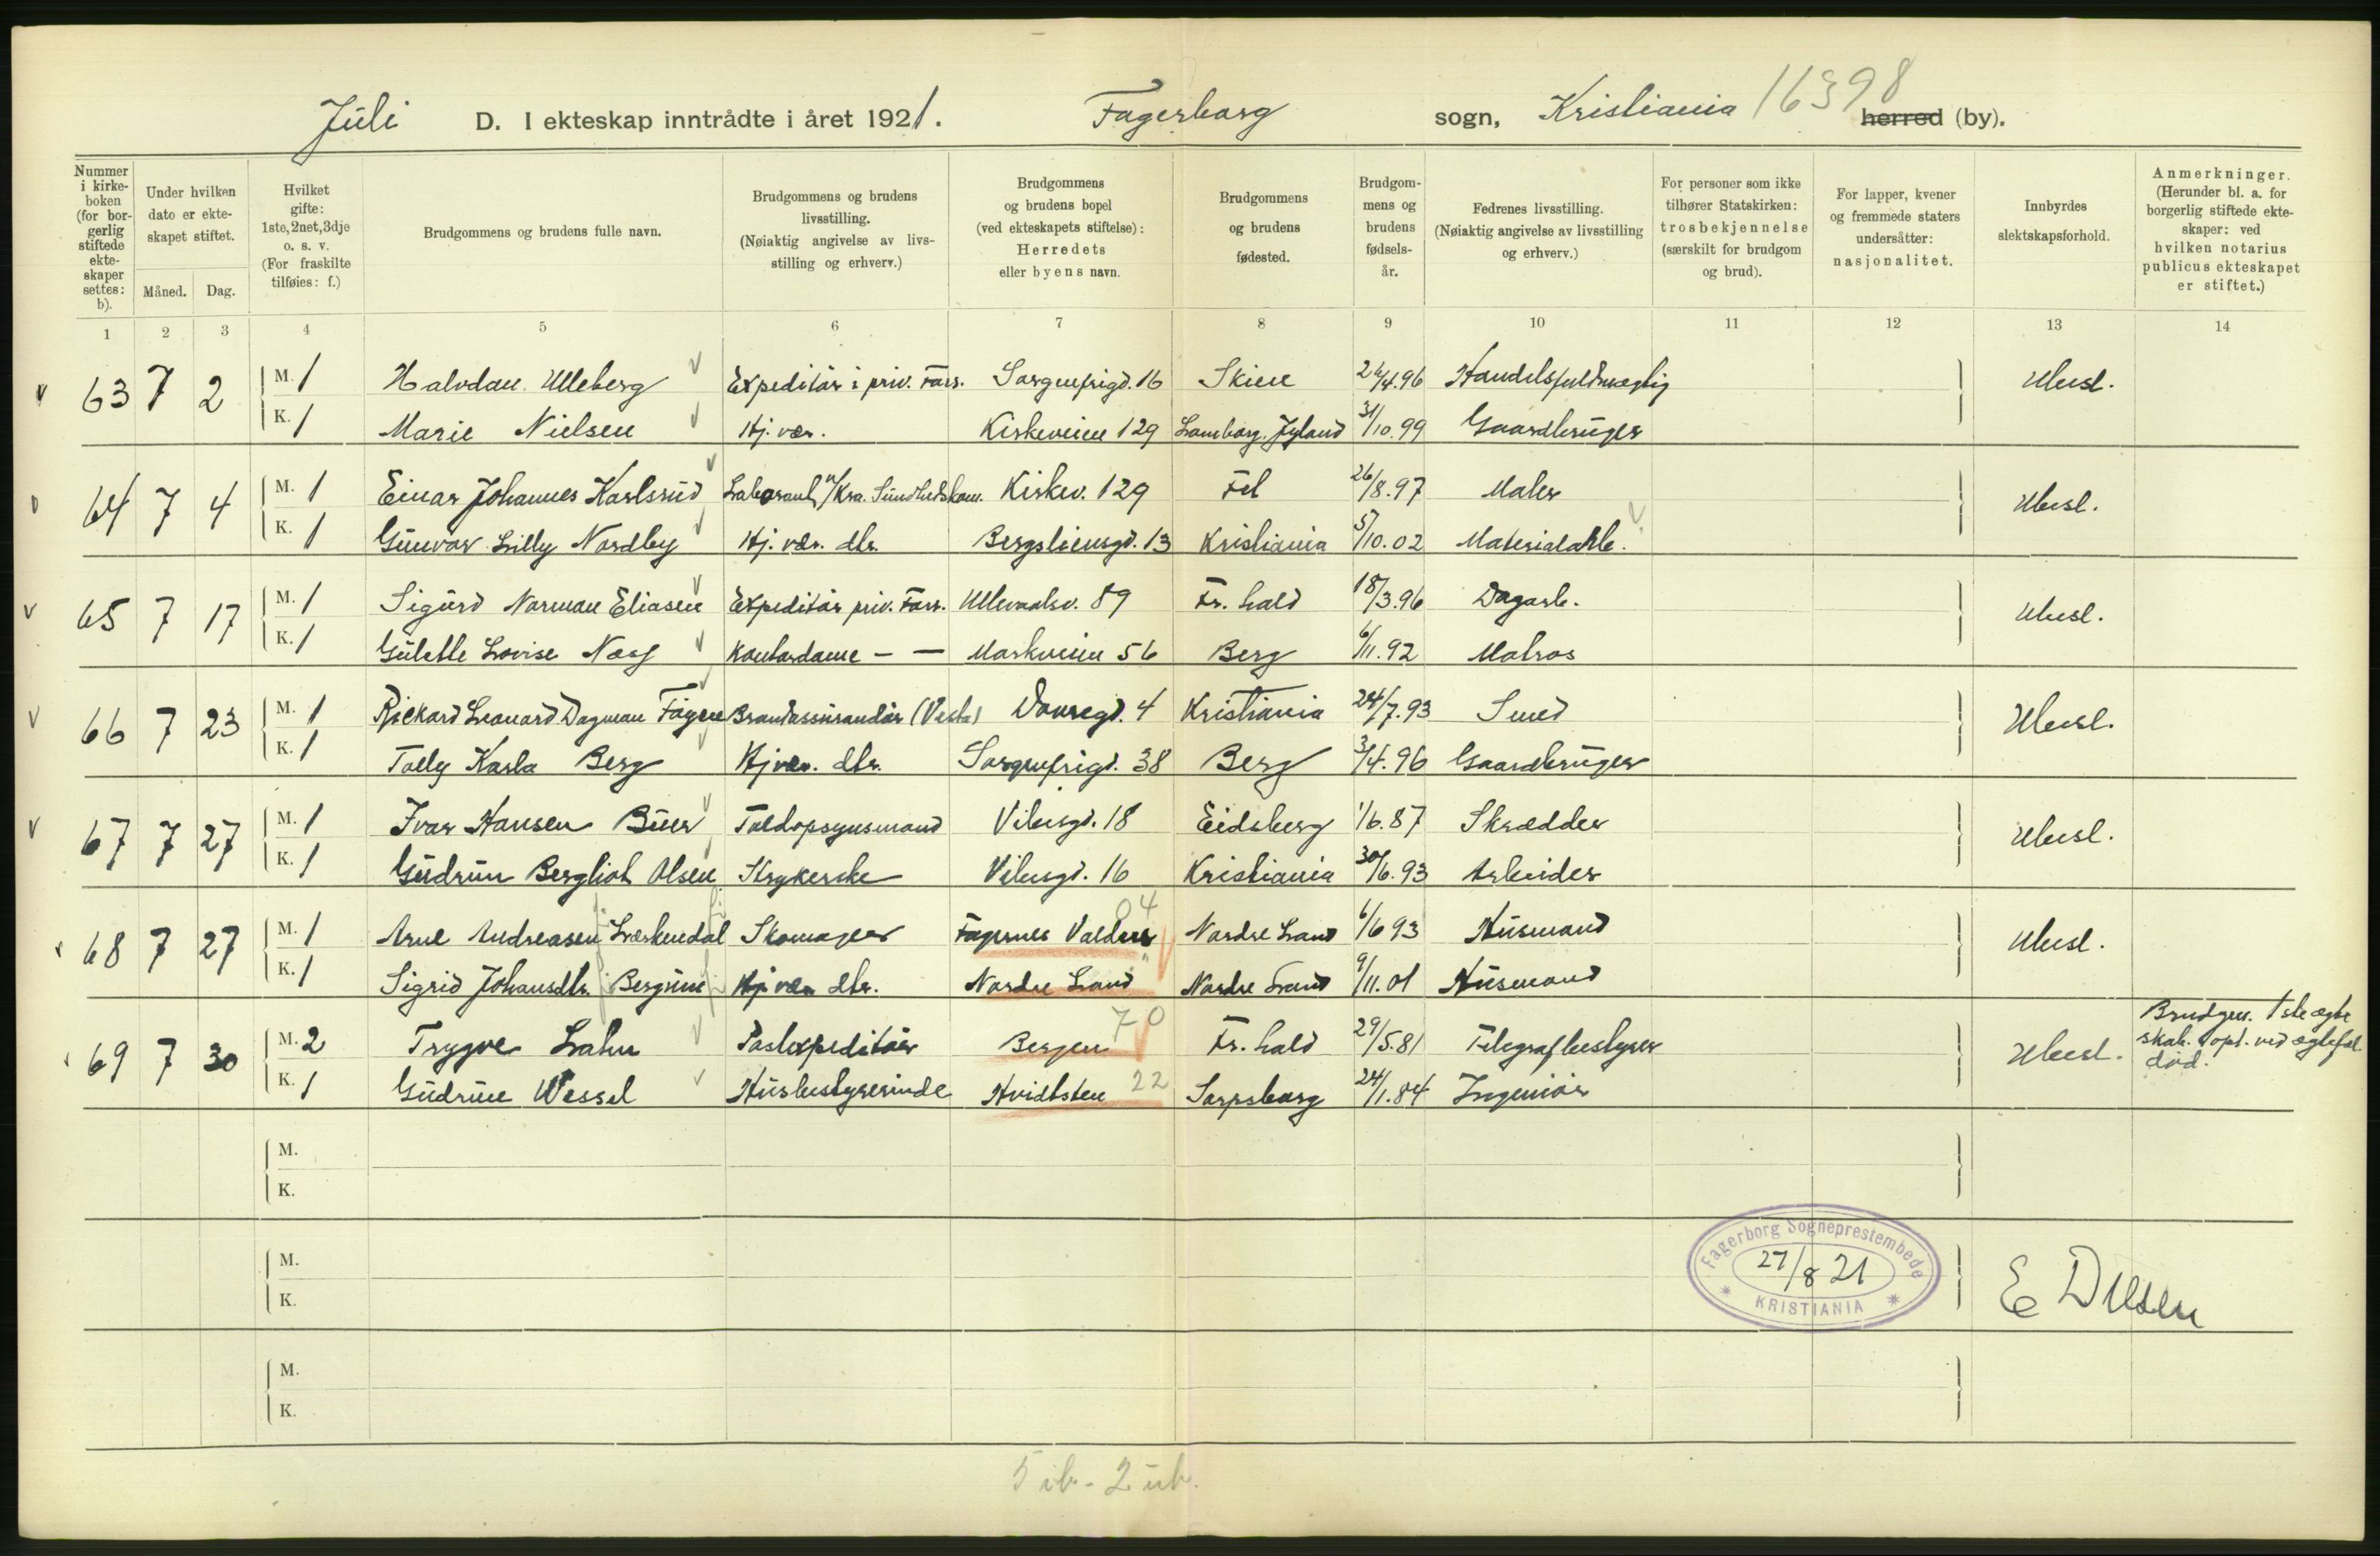 Juli D. I ekteskap inntrådte i året 1921. Fagerborg sogn, Kristiania 16398 herred (by).
Nummer i kirkeboken (for borgerlig stiftede ekteskaper settes: b).
Under hvilken dato er ekteskapet stiftet.
Måned. Dag.
Hvilket gifte: 1ste, 2net, 3dje o. s. v. (For fraskilte tilføies: f.)
Brudgommens og brudens fulle navn.
Brudgommens og brudens livsstilling. (Nøiaktig angivelse av livsstilling og erhverv.)
Brudgommens og brudens bopel (ved ekteskapets stiftelse): Herredets eller byens navn.
Brudgommens og brudens fødested.
Brudgommens og brudens fødselsår.
Fedrenes livsstilling. (Nøiaktig angivelse av livsstilling og erhverv.)
For personer som ikke tilhører Statskirken: trosbekjennelse (særskilt for brudgom og brud).
For lapper, kvener og fremmede staters undersåtter: nasjonalitet.
Innbyrdes slektskapsforhold.
Anmerkninger. (Herunder bl. a. for borgerlig stiftede ekteskaper: ved hvilken notarius publicus ekteskapet er stiftet.)
1 2 3 4 5 6 7 8 9 10 11 12 13 14
63 7 2 M. 1 Halvdan Ulleberg Expeditør i priv. Forr. Sorgenfrigd. 16 Skien 26/4.96 Handelsfuldmægtig Ubesl.
K. 1 Marie Nielsen Hj. vær. Kirkeveien 129 Lemborg. Jyland 31/10.99 Gaardbruger
64 7 4 M. 1 Einar Johannes Karlsrud Laborant v/ Kra. Sundhedskom. Kirkev. 129 Fet 26/8.97 Maler Ubesl.
K. 1 Gunvor Lilly Nordby Hj. vær. dtr. Bergsliensgd. 13 Kristiania 5/10.02 Materialarb.
65 7 17 M. 1 Sigurd Norman Eliasen Expeditør priv. Forr. Ullevaalsv. 89 Fr. hald 18/3.96 Dagarb. Ubesl.
K. 1 Gulette Lovise Næss Kontordame — — Markveien 56 Berg 6/11.92 Matros
66 7 23 M. 1 Rickard Leonard Dagman Fagen Brandassurandør (Vesta) Dovregd. 4 Kristiania 24/7.93 Smed Ubesl.
K. 1 Tolly Karla Berg Hj vær. dtr. Sorgenfrigd. 38 Berg 3/4.96 Gaardbruger
67 7 27 M. 1 Ivar Hansen Buer Toldopsynsmand Vibesgd. 18 Eidsberg 1/6.87 Skrædder Ubesl.
K. 1 Gudrun Bergliot Olsen Strykerske Vibesgd. 16 Kristiania 30/6.93 Arbeider
04
68 7 27 M. 1 Arne Andreasen Lærkendal Skomager Fagernes Valdres Nordre Land 6/6 93 Husmand Ubesl.
K. 1 Sigrid Johansdtr. Bergum Hj vær dtr. Nordre Land Nordre Land 9/11.01 Husmand
70
69 7 30 M. 2 Trygve Lahn Postexpeditør Bergen Fr. hald 29/5.81 Telegrafbestyrer Ubesl. Brudgm. 1ste ægteskab. opl. ved ægtefæl. død.
K. 1 Gudrun Wessel Husbestyrerinde Hvidtsten 22 Sarpsborg 24/1.84 Ingeniør
M.
K.
M.
K.
Fagerborg Sogneprestembede
27/8 21
KRISTIANIA
M.
K.
5 ib. - 2 ub.